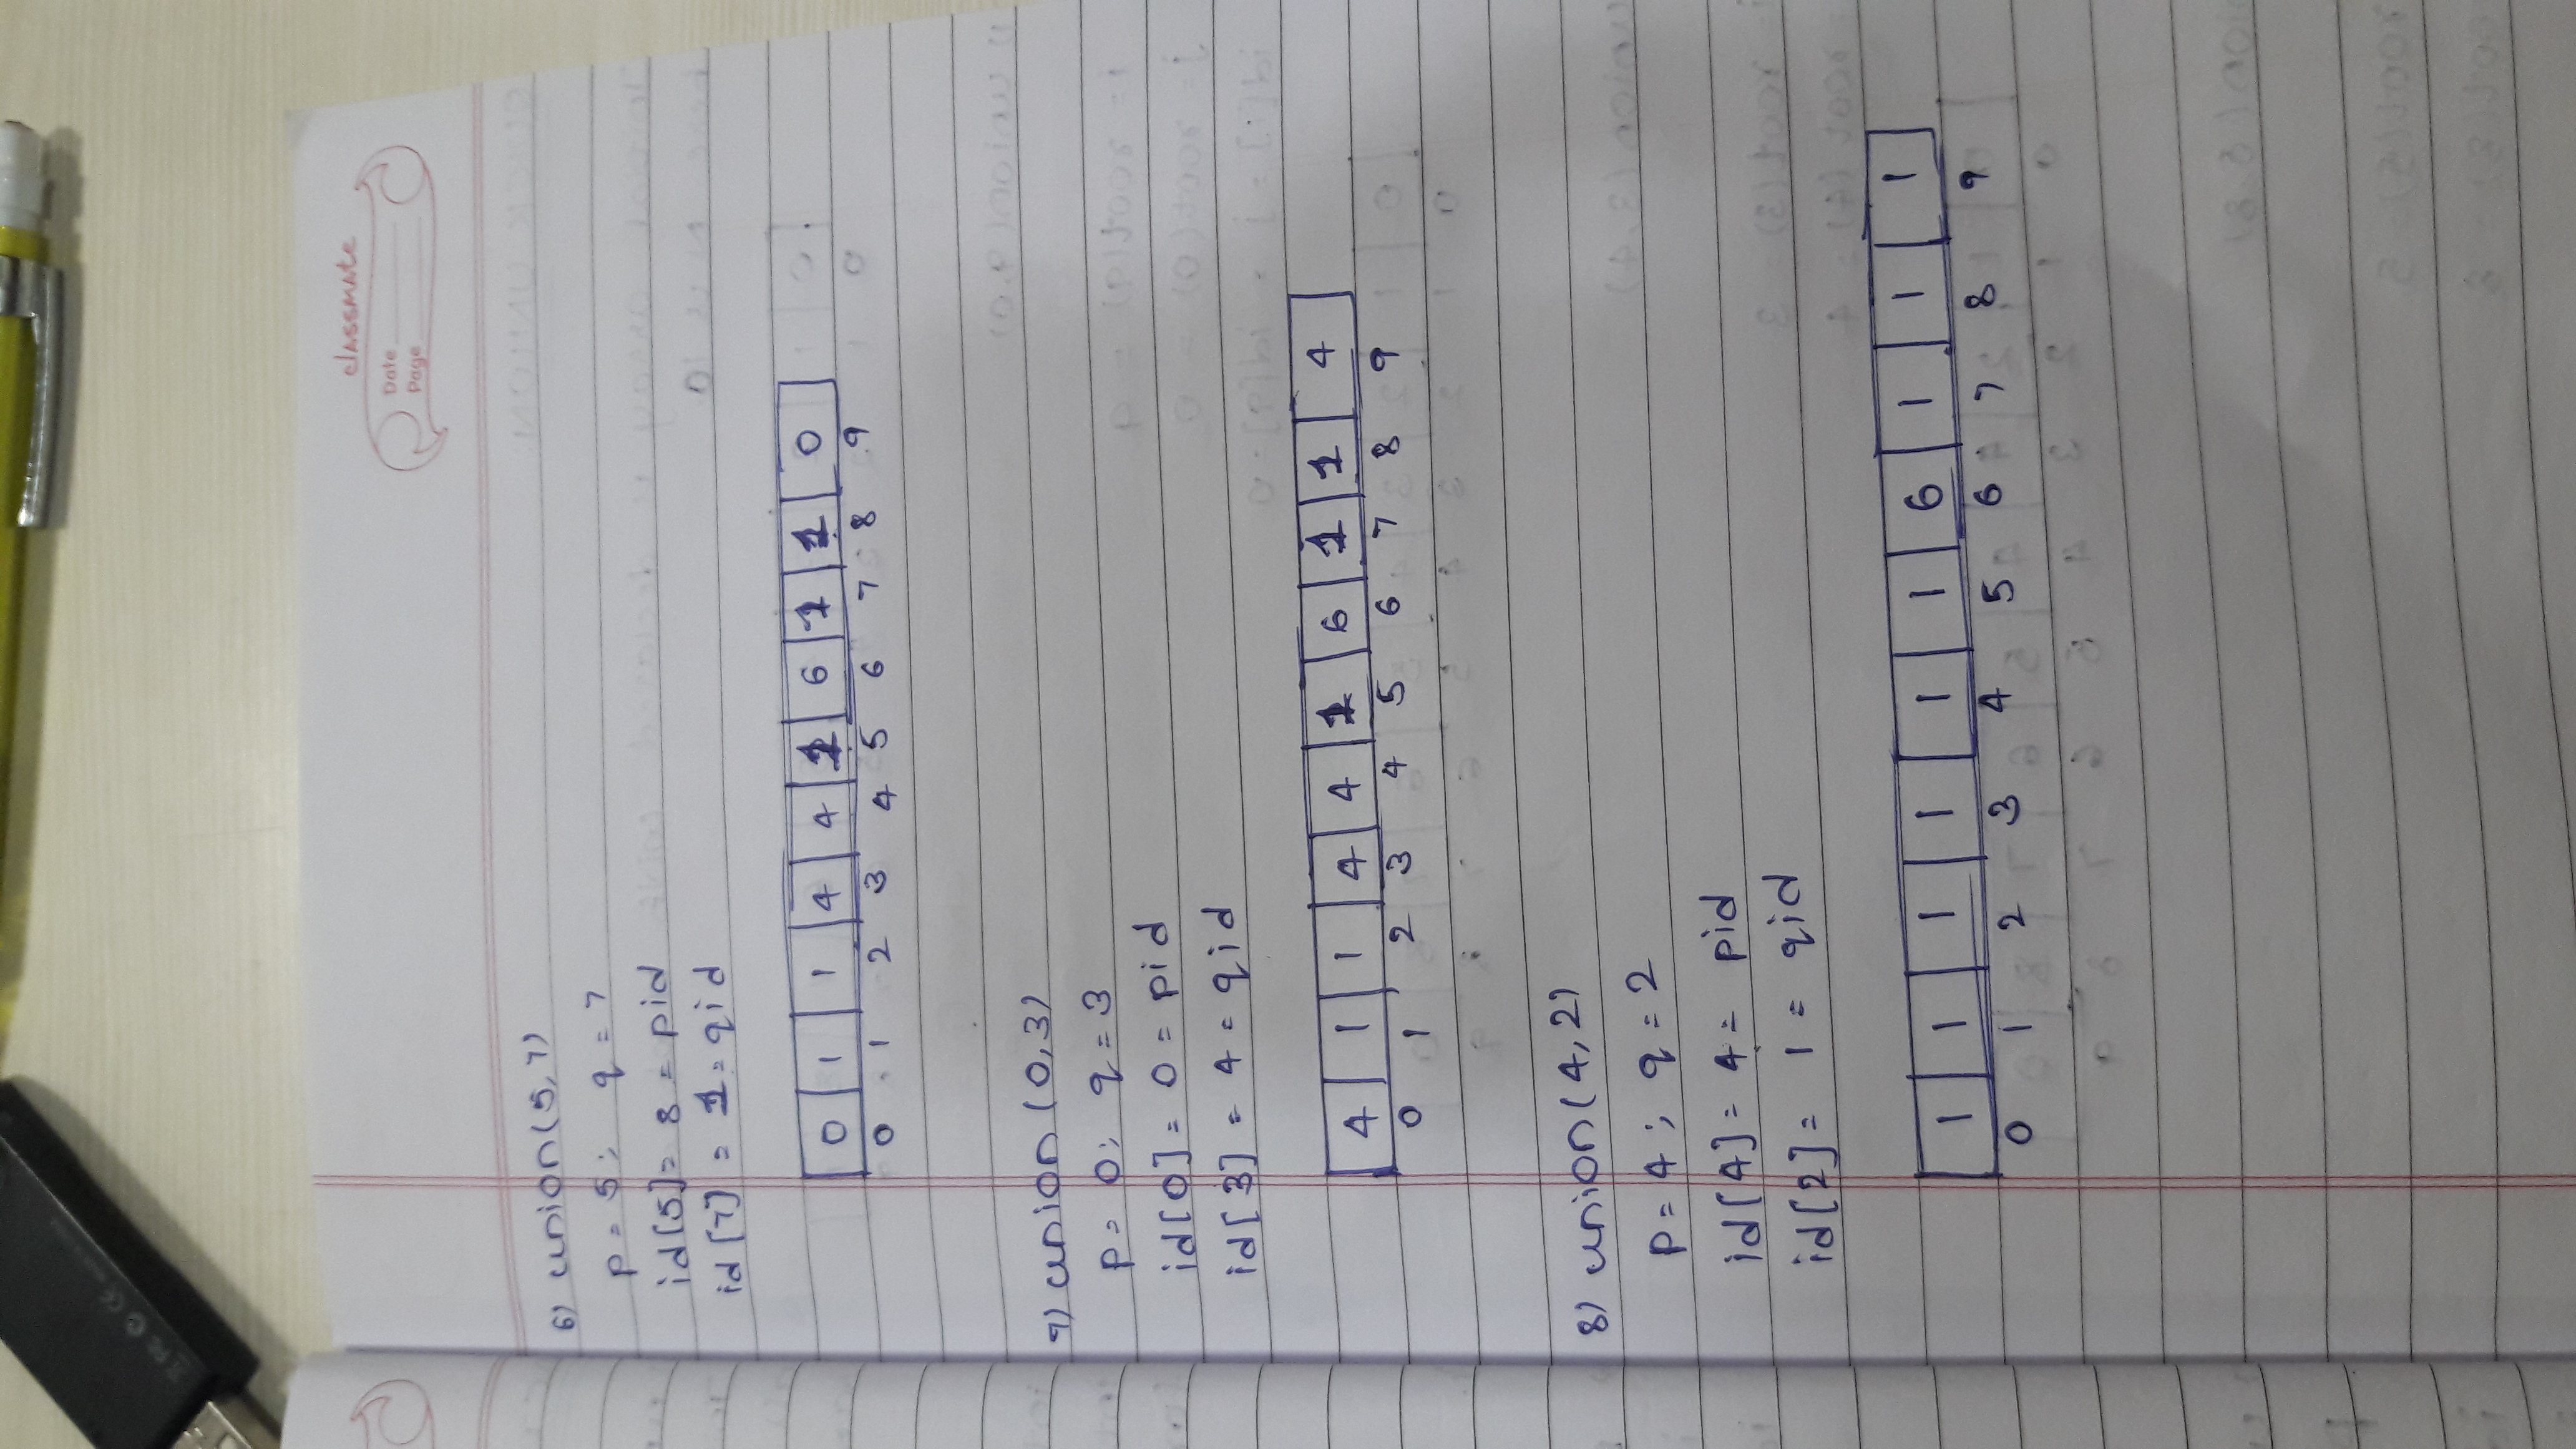 classmate
Date
Page
6) union(5,7)
p = 5; q = 7
id[5] = 8 = pid
id[7] = 1 = qid
0 1 1 4 4 1 6 1 1 0
0 1 2 3 4 5 6 7 8 9
7) union (0,3)
p = 0; q = 3
id[0] = 0 = pid
id[3] = 4 = qid
4 1 1 4 4 1 6 1 1 4
0 1 2 3 4 5 6 7 8 9
8) union(4,2)
p = 4; q = 2
id[4] = 4 = pid
id[2] = 1 = qid
1 1 1 1 1 1 6 1 1 1
0 1 2 3 4 5 6 7 8 9